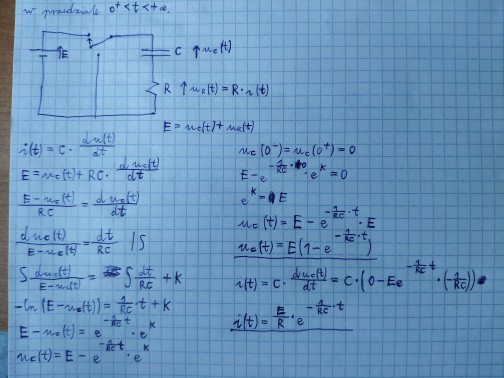 w przedziale 0⁺ < t < +∞.
E
C ↑ u_C(t)
R ↑ u_R(t) = R · i(t)
E = u_C(t) + u_R(t)
i(t) = C · du(t)/dt
E = u_C(t) + RC · du_C(t)/dt
(E - u_C(t))/RC = du_C(t)/dt
du_C(t)/(E - u_C(t)) = dt/RC /∫
∫ du_C(t)/(E - u_C(t)) = ∫ dt/RC + K
-ln(E - u_C(t)) = 1/RC · t + K
E - u_C(t) = e^(-1/RC t) · e^K
u_C(t) = E - e^(-1/RC t) · e^K
u_C(0⁻) = u_C(0⁺) = 0
E - e^(-1/RC · 0) · e^K = 0
e^K = E
u_C(t) = E - e^(-1/RC · t) · E
u_C(t) = E(1 - e^(-1/RC · t))
i(t) = C · du_C(t)/dt = C · (0 - Ee^(-1/RC t) · (-1/RC))
i(t) = E/R · e^(-1/RC · t)